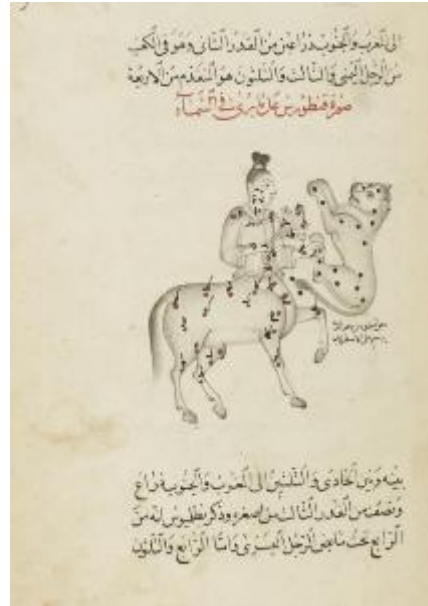 الى المغرب والجنوب ذراعين من القدر الثانى وهو فى الكعب
من الرجل اليمنى والثالث والثلثون هو المتقدم من الاربعة
صورة قنطورس على ما يرى فى السماء
بينه وبين الحادى والثلثين الى المغرب والجنوب ذراع
ونصف من القدر الثالث من اصغره وذكر بطلميوس انه من
الرابع تحت مابض الرجل اليسرى واما الرابع والثلثون